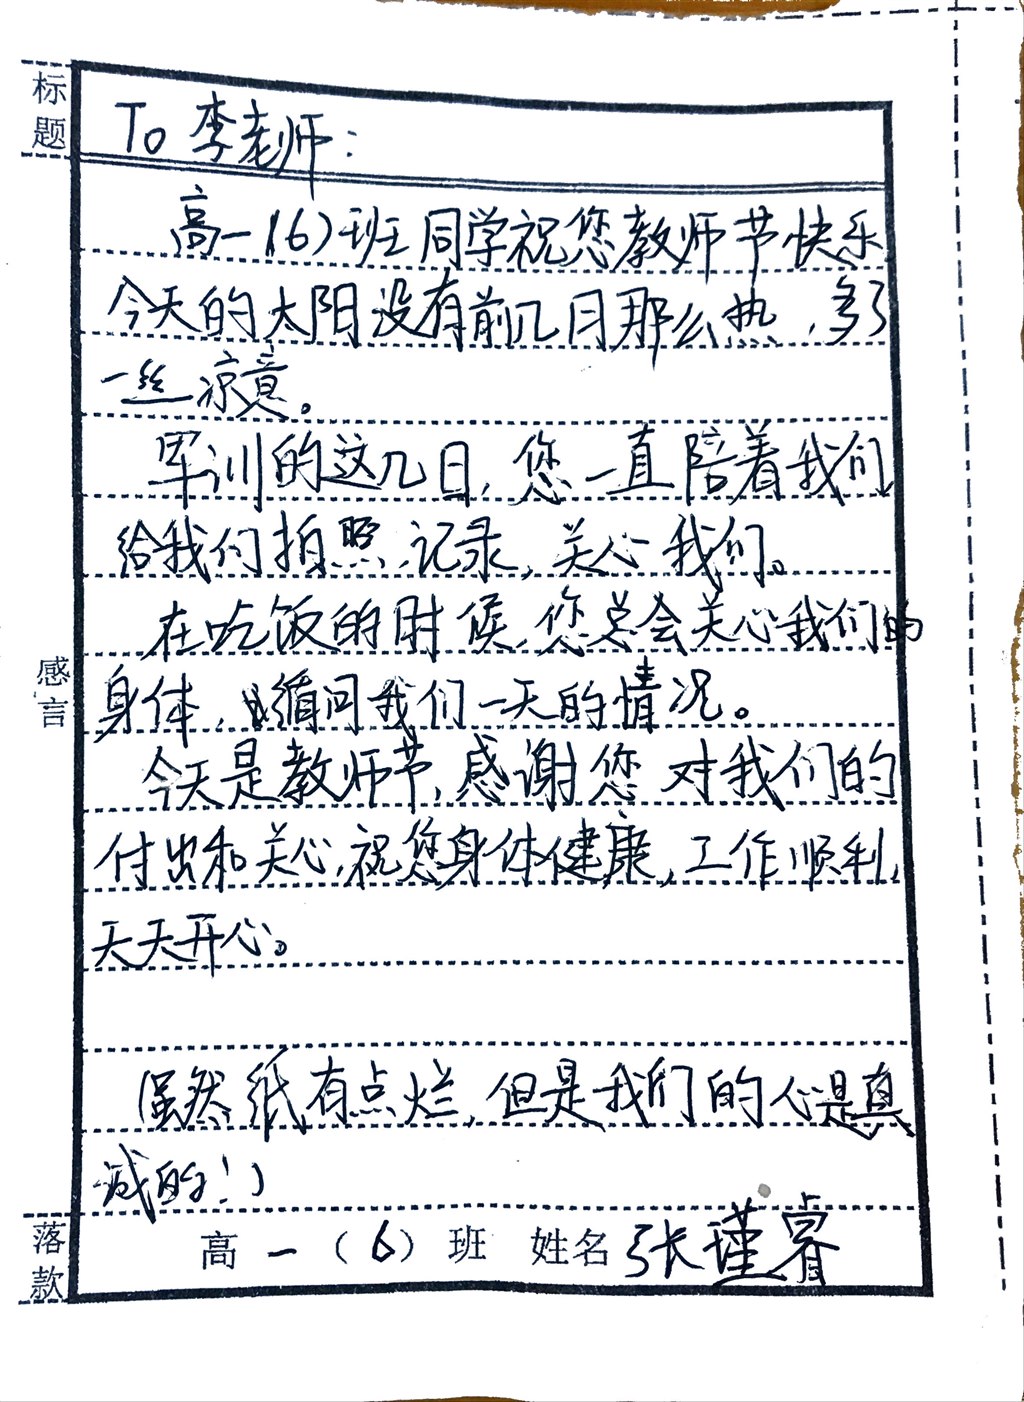 标题
To 李老师：
高一（6）班同学祝您教师节快乐
今天的太阳没有前几日那么热，多了
一丝凉意。
军训的这几日，您一直陪着我们
给我们拍照，记录，关心我们。
在吃饭的时候，您总会关心我们的
身体，循问我们一天的情况。
感言
今天是教师节，感谢您对我们的
付出和关心，祝您身体健康，工作顺利，
天天开心。
（虽然纸有点烂，但是我们的心是真
诚的！）
落款
高一（6）班 姓名 张瑾睿